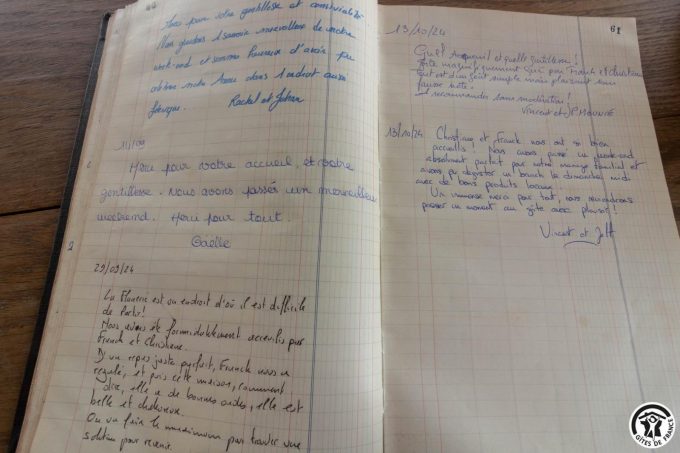 Merci pour votre gentillesse et convivialité
Nous gardons 1 souvenir merveilleux de notre
week-end et sommes heureux d'avoir pu
notre dans 1 endroit aussi
féérique. Rachel et
14/09
Merci pour votre accueil, et votre
gentillesse. Nous avons passés un merveilleux
weekend. Merci pour tout.
Gaëlle
29/09/24
La est un endroit d'où il est difficile
de partir!
Nous avons été formidablement accueillis par
Franck et Christiane.
D'un repas juste parfait, Franck nous a
régalé, et puis cette maison, comment
dire, elle a de bonnes ondes, elle est
belle et chaleureuse.
On va faire le maximum pour trouver une
solution pour revenir.
61
13/10/24
Quel accueil et quelle gentillesse!
Gîte magnifiquement par Franck et Christiane
tout est d'un goût simple mais plaisant
fête.
A recommander sans modération!
Vincent et
13/10/24 Christiane et Franck nous ont si bien
accueillis! Nous avons passé un week-end
absolument parfait pour notre mariage familial et
avons pu déguster un brunch le dimanche midi
avec de bons produits locaux.
Un immense merci pour tout, nous reviendrons
passer un moment au gîte avec plaisir!
Vincent et
GÎTES DE FRANCE